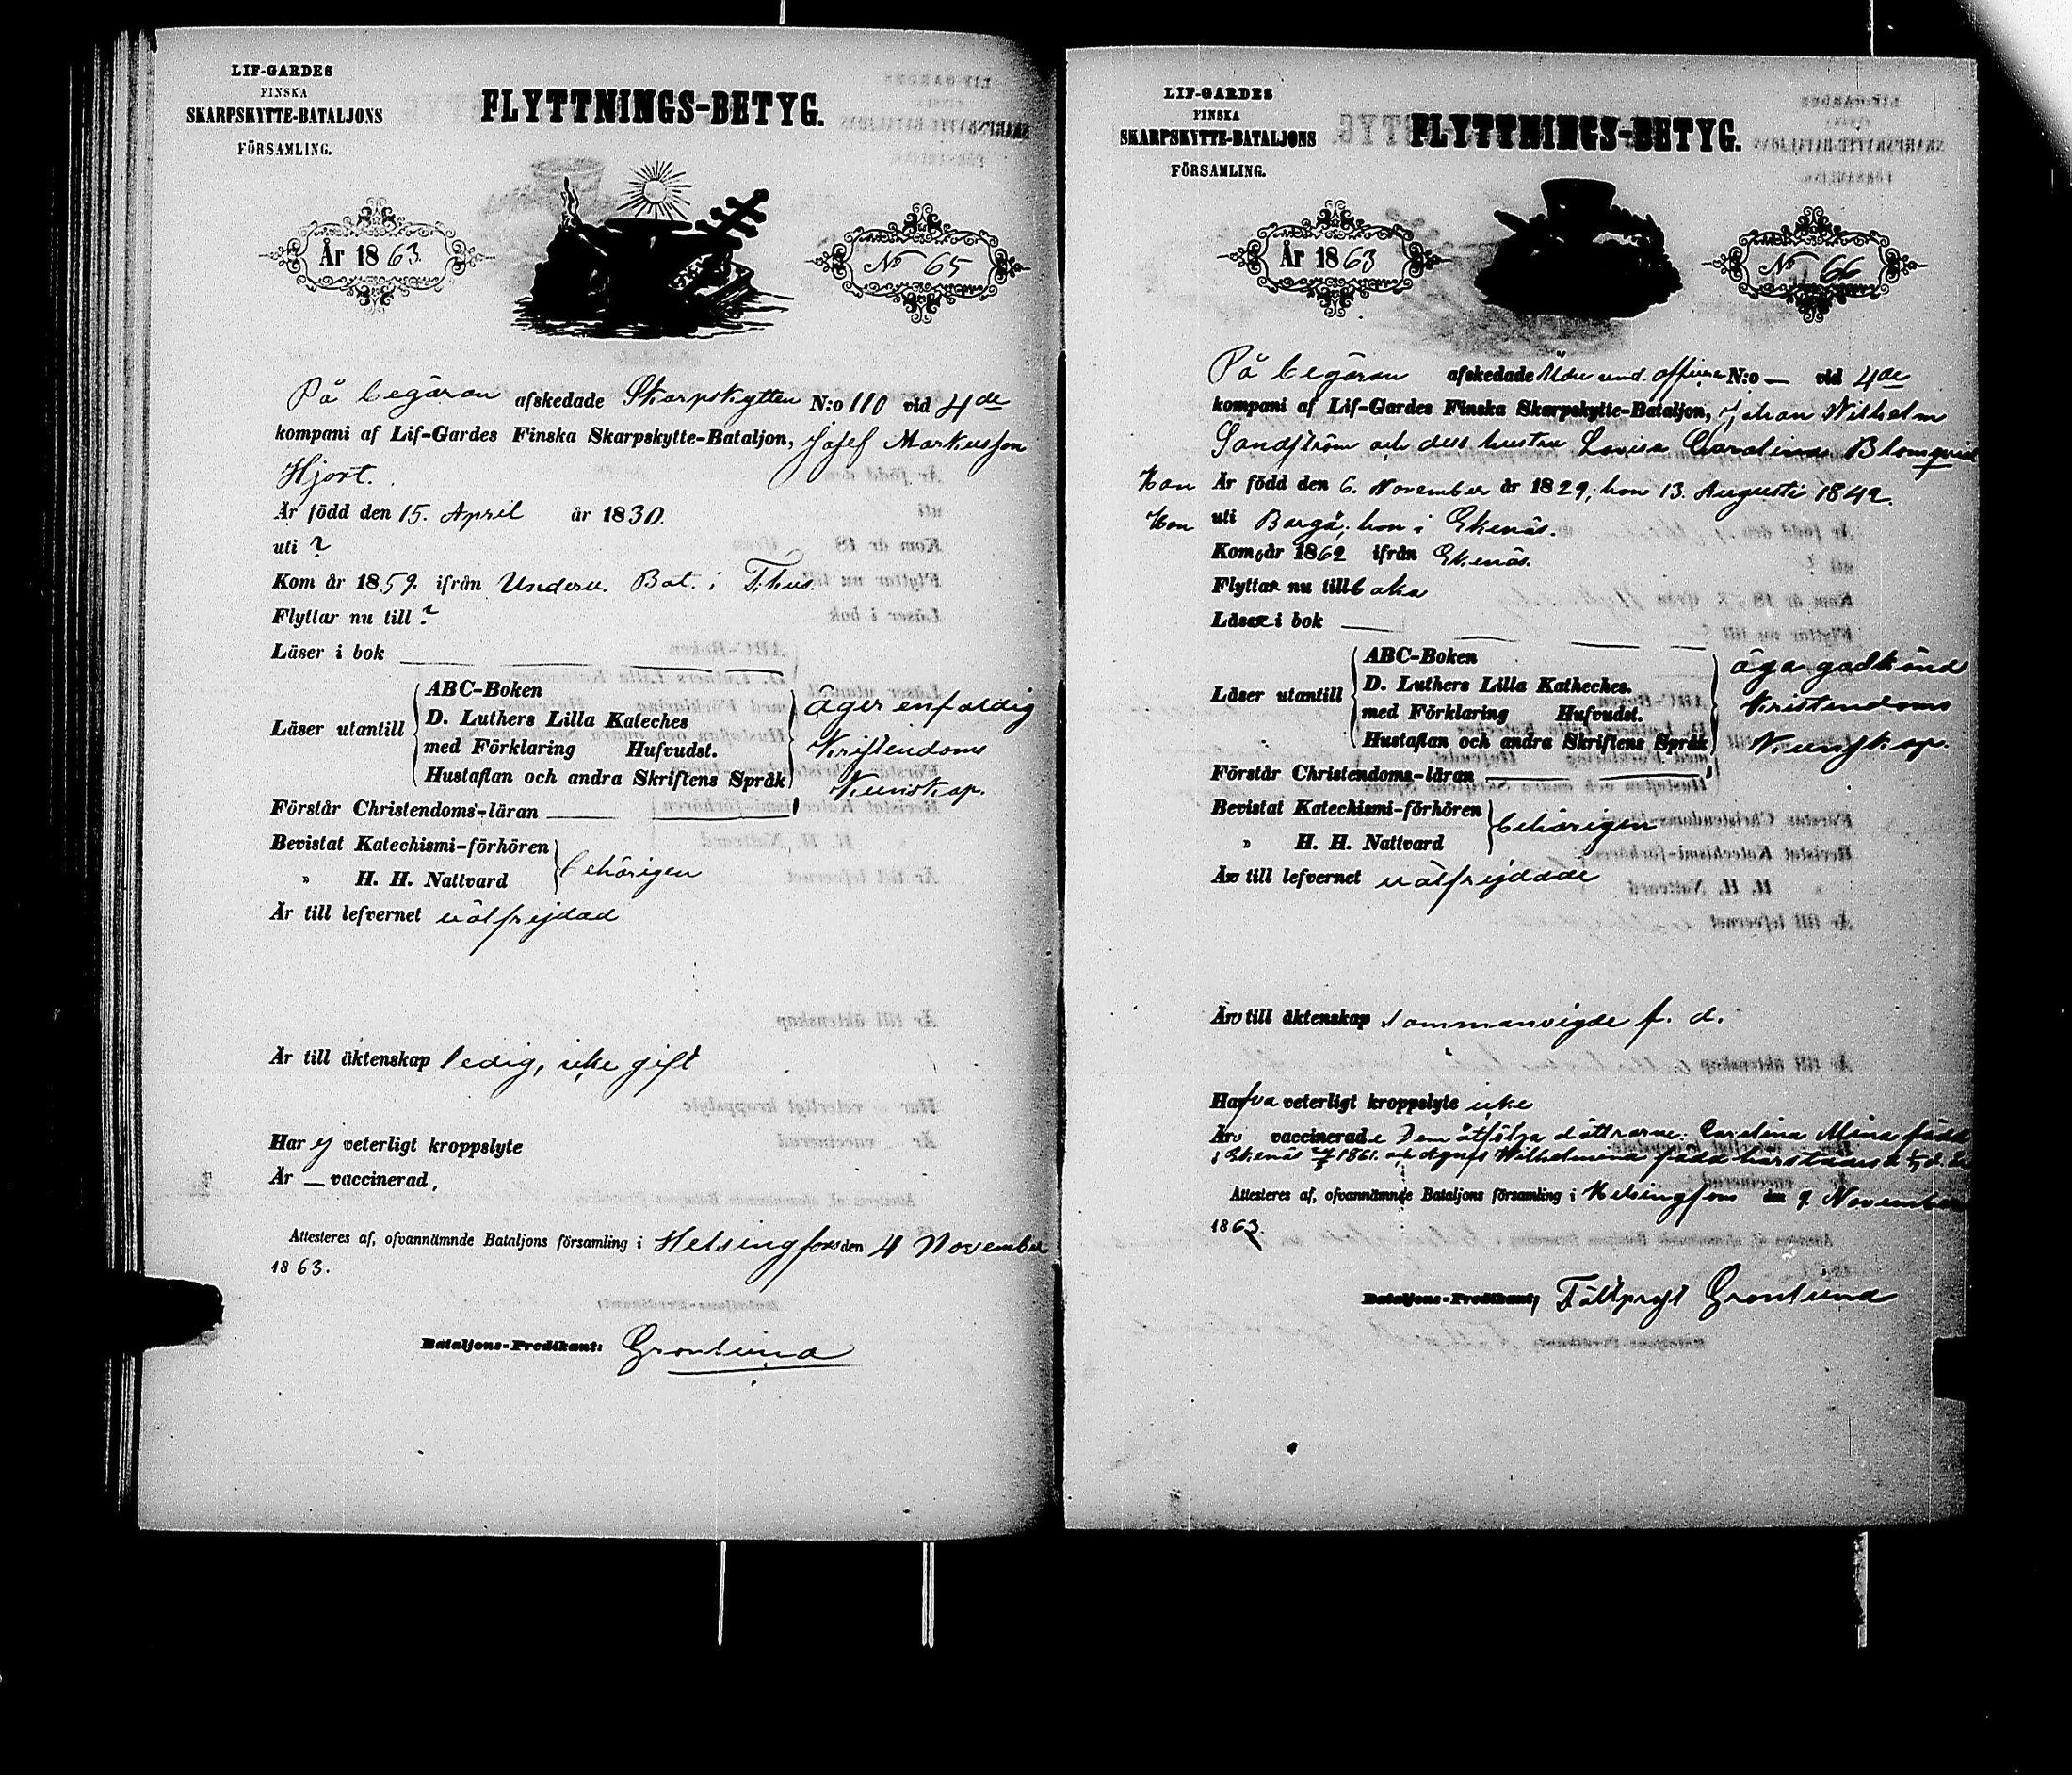 LIF-GARDES
FINSKA
SKARPSKYTTE-BATALJONS
FÖRSAMLING.
FLYTTNINGS-BETYG.
År 1863.
No 65
På begäran afskedade Skarpskytten N:o 110 vid 4de
kompani af Lif-Gardes Finska Skarpskytte-Bataljon, Josef Markusson
Hjort.
Är född den 15. April år 1830.
uti ?
Kom år 1859. ifrån Underv. Bat. i T.hus.
Flyttar nu till ?
Läser i bok
Läser utantill
ABC-Boken
D. Luthers Lilla Kateches
med Förklaring Hufvudst.
Hustaflan och andra Skriftens Språk
Äger enfaldig
Kristendoms
Kunskap.
Förstår Christendoms-läran
Bevistat Katechismi-förhören
" H. H. Nattvard
behörigen
Är till lefvernet välfrejdad
Är till äktenskap ledig, icke gift
Har ej veterligt kroppslyte
Är — vaccinerad,
Attesteras af, ofvannämnde Bataljons församling i Helsingfors den 4 November
1863.
Bataljons-Predikant: Gronlund
LIF-GARDES
FINSKA
SKARPSKYTTE-BATALJONS
FÖRSAMLING.
FLYTTNINGS-BETYG.
År 1863
No 66
På begäran afskedade Äldre und. officer N:o — vid 4de
kompani af Lif-Gardes Finska Skarpskytte-Bataljon, Johan Wilhelm
Sandström och dess hustru Lovisa Carolina Blomqvist
Han Är född den 6. November år 1829; hon 13. Augusti 1842.
Han uti Borgå; hon i Ekenäs.
Kom år 1862 ifrån Ekenäs.
Flyttar nu tillbaka
Läser i bok
Läser utantill
ABC-Boken
D. Luthers Lilla Katheches.
med Förklaring Hufvudst.
Hustaflan och andra Skriftens Språk
äga godkänd
Kristendoms
Kunskap.
Förstår Christendoms-läran
Bevistat Katechismi-förhören
" H. H. Nattvard
behörigen
Äro till lefvernet välfrejdade
Äro till äktenskap sammanvigde f. d.
Hafva veterligt kroppslyte icke
Äro vaccinerade Dem åtfölja döttrarne: Carolina Mina född
i Ekenäs 1861. och Agnes Wilhelmina född härstädes
Attesteras af, ofvannämnde Bataljons församling i Helsingfors den 9. November
1863
Bataljons-Predikant, Fältprost Gronlund